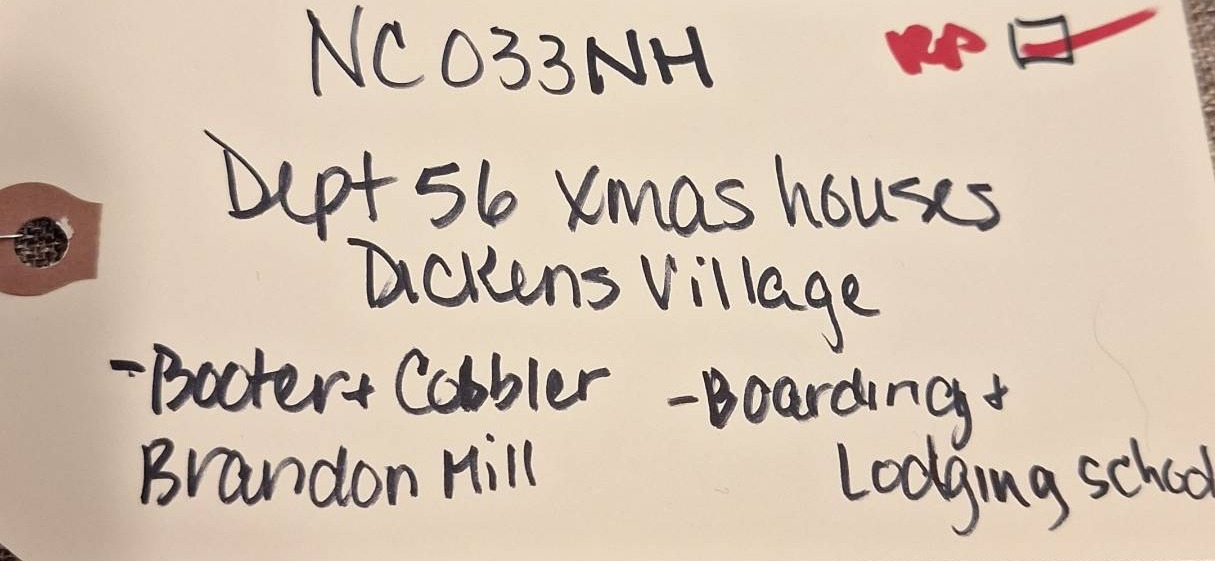 NC033NH RP
Dept 56 xmas houses
Dickens Village
-Booter+ Cobbler -Boarding+
Brandon Mill Lodging school